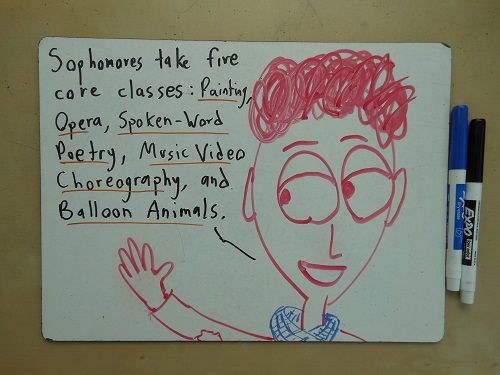 Sophomores take five
core classes: Painting,
Opera, Spoken-Word
Poetry, Music Video
Choreography, and
Balloon Animals.
EXPO